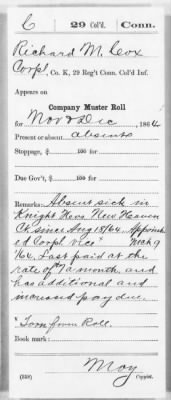 C 29 Col'd. Conn.
Richard M. Cox
Corpl, Co. K, 29 Reg't Conn. Col'd Inf.
Appears on
Company Muster Roll
for Nov & Dec, 1864
Present or absent absent
Stoppage, $ 100 for
Due Gov't, $ 100 for
Remarks: Absent sick in
Knight Hosp New Haven
Ct since Aug 18/64. Appoint
ed Corpl vice * Mch 9
1/64. Last paid at the
rate of $7 a month and
has additional and
increased pay due.
* Torn from Roll.
Book mark:
Moy
(358) Copyist.